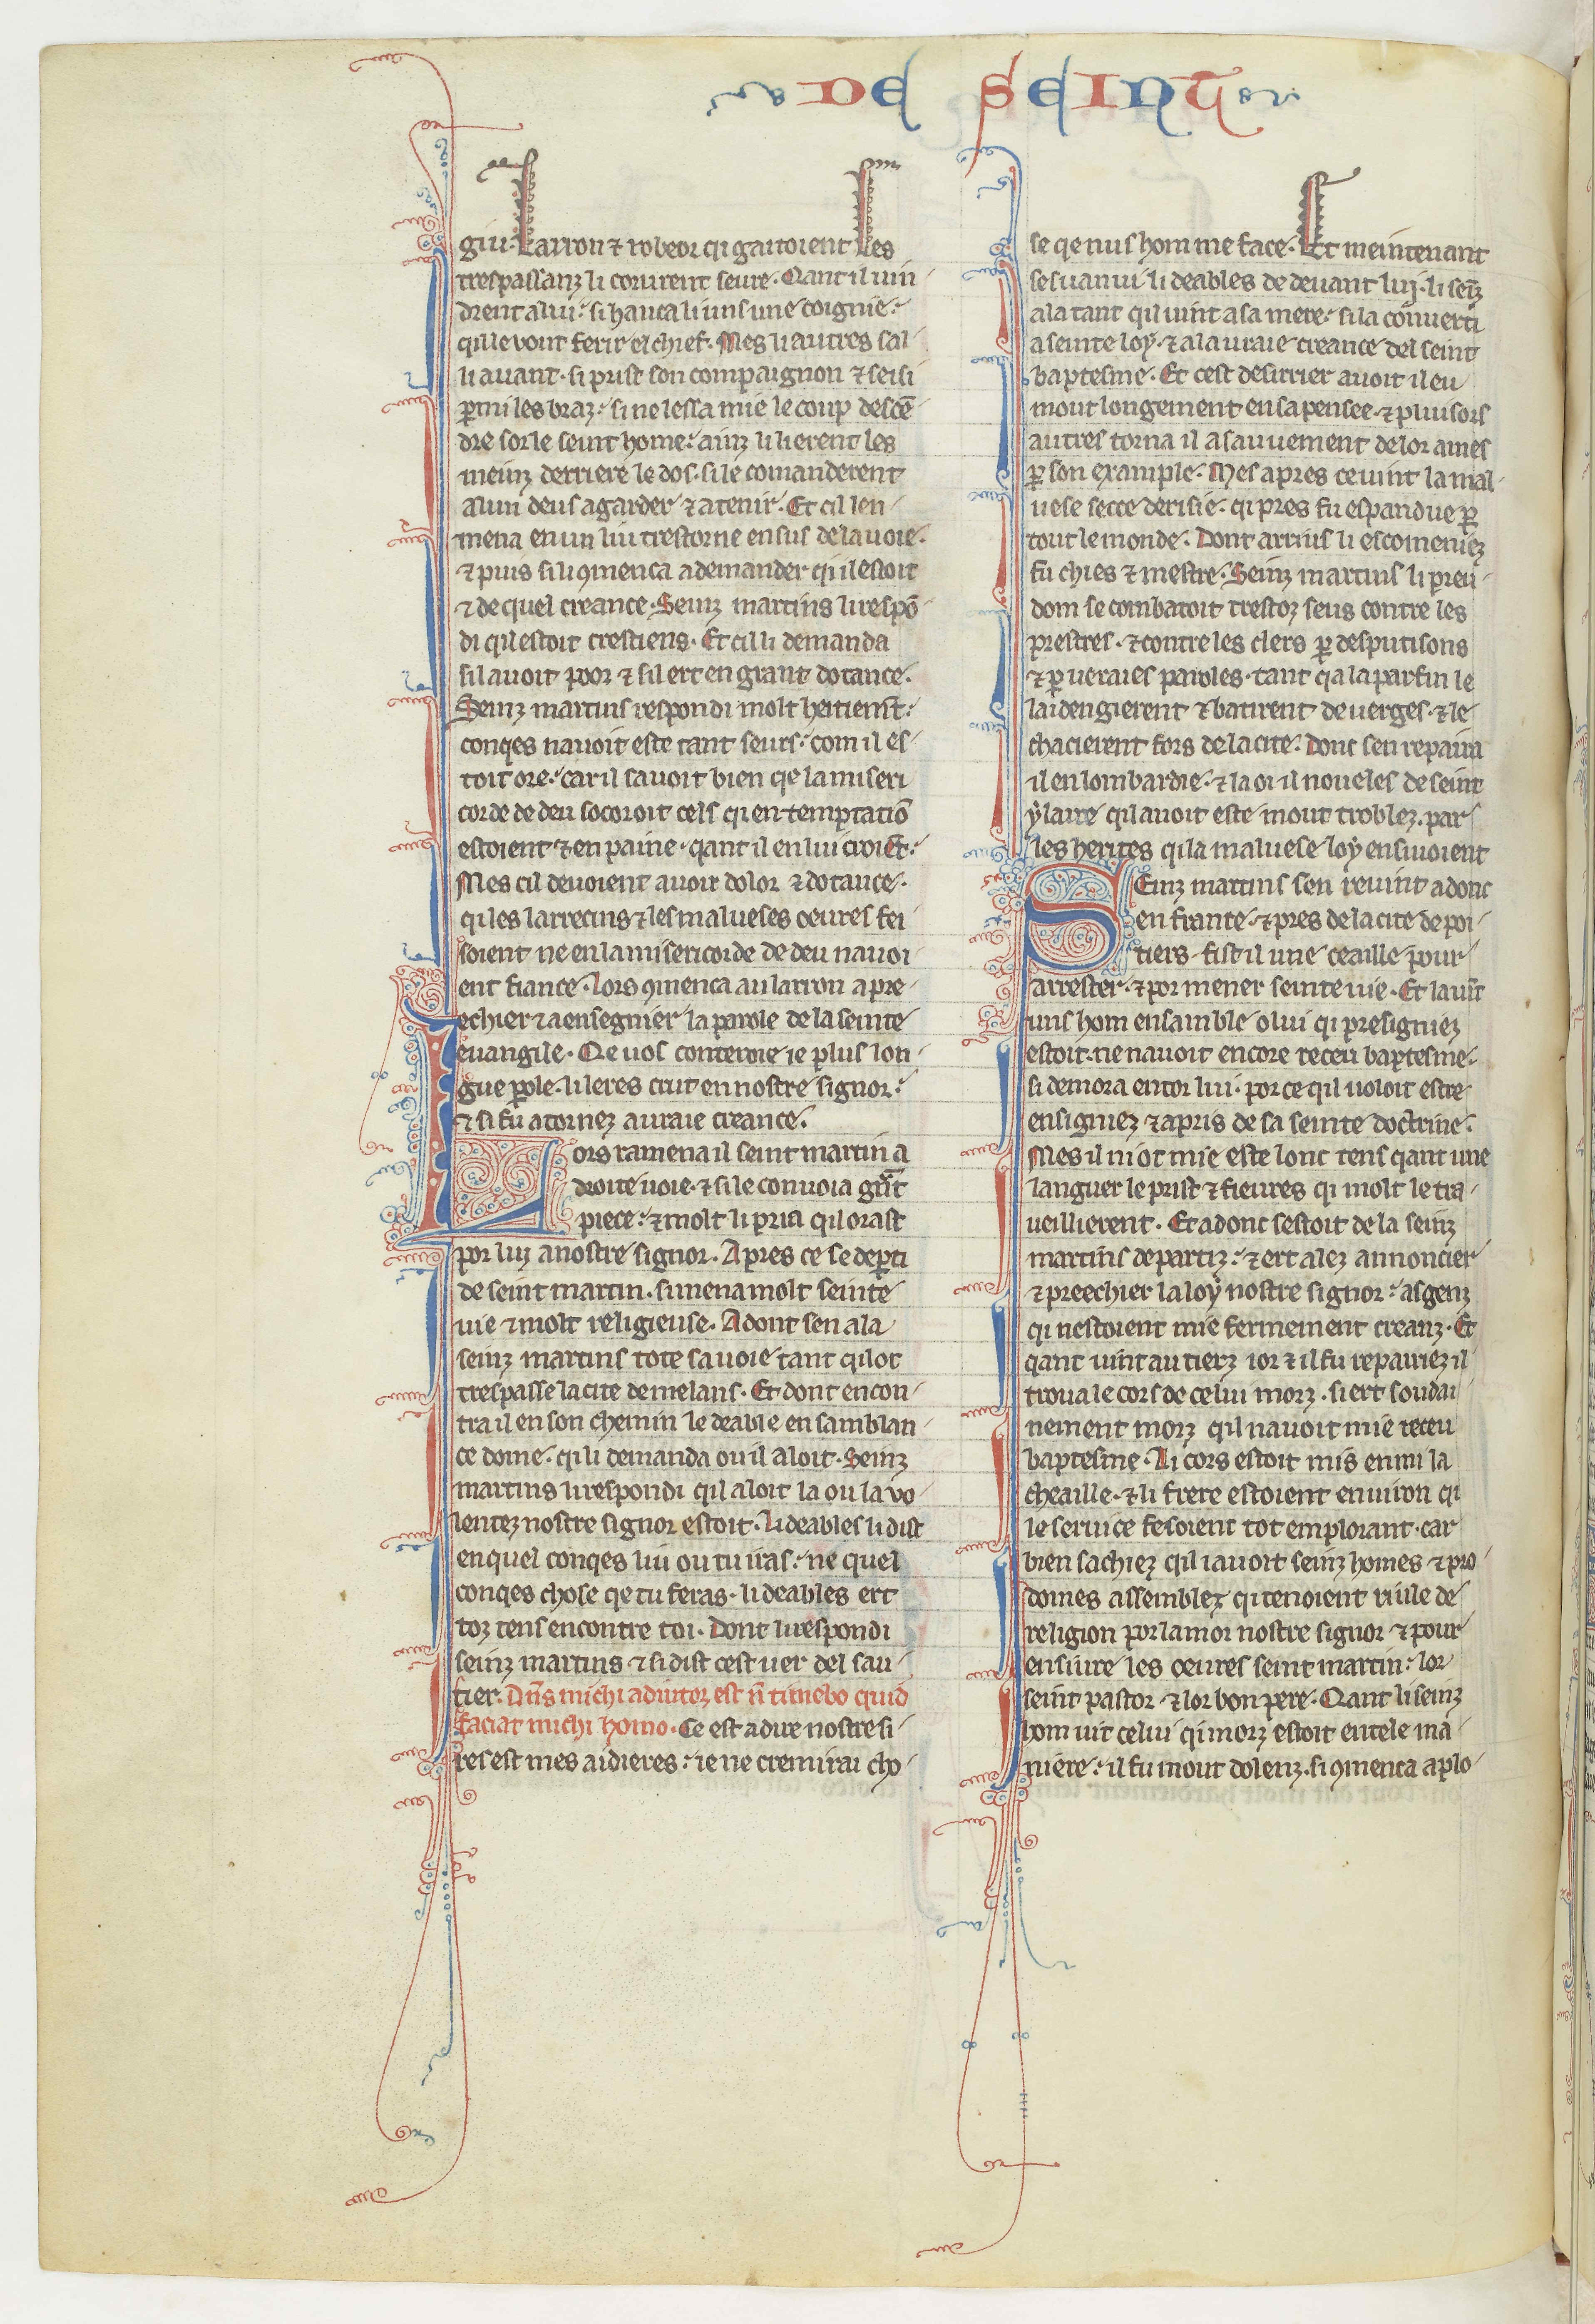 DE SEINT
giu. Larron ⁊ robeor qi gaitoient les
trespassanz li corurent seure. Qant il uin
drent a lui. si hauca li uns une coignie.
qil le vout ferir el chief. Mes li autres sal
li auant. si prist son compaignon ⁊ seisi
ꝑmi les braz. si ne lessa mie le coup descē
dre sor le seint home. ainz li lierent les
meinz derriere le dos. si le comanderent
a lun deus a garder ⁊ a tenir. Et cil len
mena en un liu trestorne en sus de la uoie.
⁊ puis si li ꝯmenca a demander qi il estoit
⁊ de quel creance. Seinz martins li respō
di qil estoit crestiens. Et cil li demanda
sil auoit poor ⁊ sil ert en grant dotance.
Seinz martins respondi molt heitiemt̄.
conqes nauoit este tant seurs. com il es
toit ore. car il sauoit bien qe la miseri
corde de deu socoroit cels qi en temptatiō
estoient ⁊ en paine. qant il en lui croiēt.
Mes cil deuoient auoir dolor ⁊ dotance.
qi les larrecins ⁊ les malueses oeures fei
soient ne en la misericorde de deu nauoi
ent fiance. Lors ꝯmenca au larron a pre
echier ⁊ a ensegnier la parole de la seinte
euangile. Qe uos conteroie ie plus lon
gue ꝑole. li leres crut en nostre signor.
⁊ si fu atornez a uraie creance.
Lors ramena il seint martin a
droite uoie. ⁊ si le conuoia gr̄t
piece. ⁊ molt li pria qil orast
por lui a nostre signor. Apres ce se deꝑti
de seint martin. si mena molt seinte
uie ⁊ molt religieuse. Adont sen ala
seinz martins tote sa uoie tant qil ot
trespasse la cite de melans. Et dont encon
tra il en son chemin le deable en samblan
ce dome. qi li demanda ou il aloit. Seinz
martins li respondi qil aloit la ou la vo
lentez nostre signor estoit. Li deables li dist
en quel conqes liu ou tu iras. ne quel
conqes chose qe tu feras. li deables ert
toz tens encontre toi. Dont li respondi
seinz martins ⁊ si dist cest uer del sau
tier. Dn̄s michi adiutor est n̄ timebo quid
faciat michi homo. Ce est a dire nostre si
res est mes aidieres. ie ne cremirai cho
se qe nus hom me face. Et meintenant
sesuanui li deables de deuant luj. li seīz
ala tant qil uint a sa mere. si la conuerti
a seinte loy. ⁊ a la uraie creance del seint
baptesme. Et cest desirrier auoit il eu
mout longement en sa pensee. ⁊ pluisors
autres torna il a sauuement de lor ames
ꝑ son example. Mes apres ce uint la mal
uese secte derisie. qi pres fu espandue ꝑ
tout le monde. Dont arrius li escomeniez
fu chies ⁊ mestre. Seinz martins li preu
dom se combatoit trestoz seus contre les
prestres. ⁊ contre les clers ꝑ desputisons
⁊ ꝑ ueraies paroles. tant qa la parfin le
laidengierent ⁊ batirent de uerges. ⁊ le
chacierent fors de la cite. Dont sen repaira
il en lombardie. ⁊ la oi il noueles de seint
ylaire qil auoit este mout troblez. par
les herites qi la maluese loy ensiuoient
Seinz martins sen reuint adonc
en france. ⁊ pres de la cite de poi
tiers. fist il une ceaille pour
arrester. ⁊ por mener seinte uie. Et la uīt
uns hom ensamble o lui qi presigniez
estoit. ne nauoit encore receu baptesme.
si demora entor lui. por ce qil uoloit estre
ensigniez ⁊ apris de sa seinte doctrine.
Mes il ni ot mie este lonc tens qant une
languer le prist ⁊ fieures qi molt le tra
ueillierent. Et adont sestoit de la seinz
martins departiz. ⁊ ert alez annoncier
⁊ preechier la loy nostre signor. as genz
qi nestoient mie fermement creanz. Et
qant uint au tierz ior ⁊ il fu repairiez il
troua le cors de celui morz. si ert soudai
nement morz qil nauoit mie receu
baptesme. Li cors estoit mis enmi la
cheaille. ⁊ li frere estoient enuiron qi
le seruice fesoient tot emplorant. car
bien sachiez qil i auoit seinz homes ⁊ pro
domes assemblez qi tenoient riule de
religion por lamor nostre signor ⁊ pour
ensiure les oeures seint martin. lor
seint pastor ⁊ lor bon pere. Qant li seinz
hom uit celui qi morz estoit en tele ma
niere. il fu mout dolenz. si ꝯmenca a plo